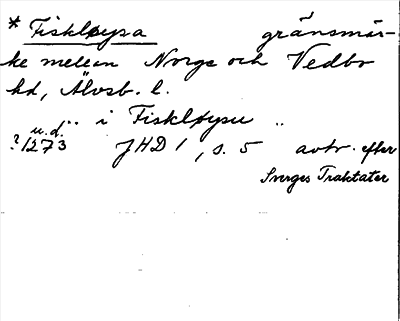 * Fiskløysa gränsmär-
ke mellan Norge och Vedbo
hd, Älvsb. l.
" i Fiskløysu "
u.d.
? 1273 JHD 1, s. 5 avtr. efter
Sverges Traktater